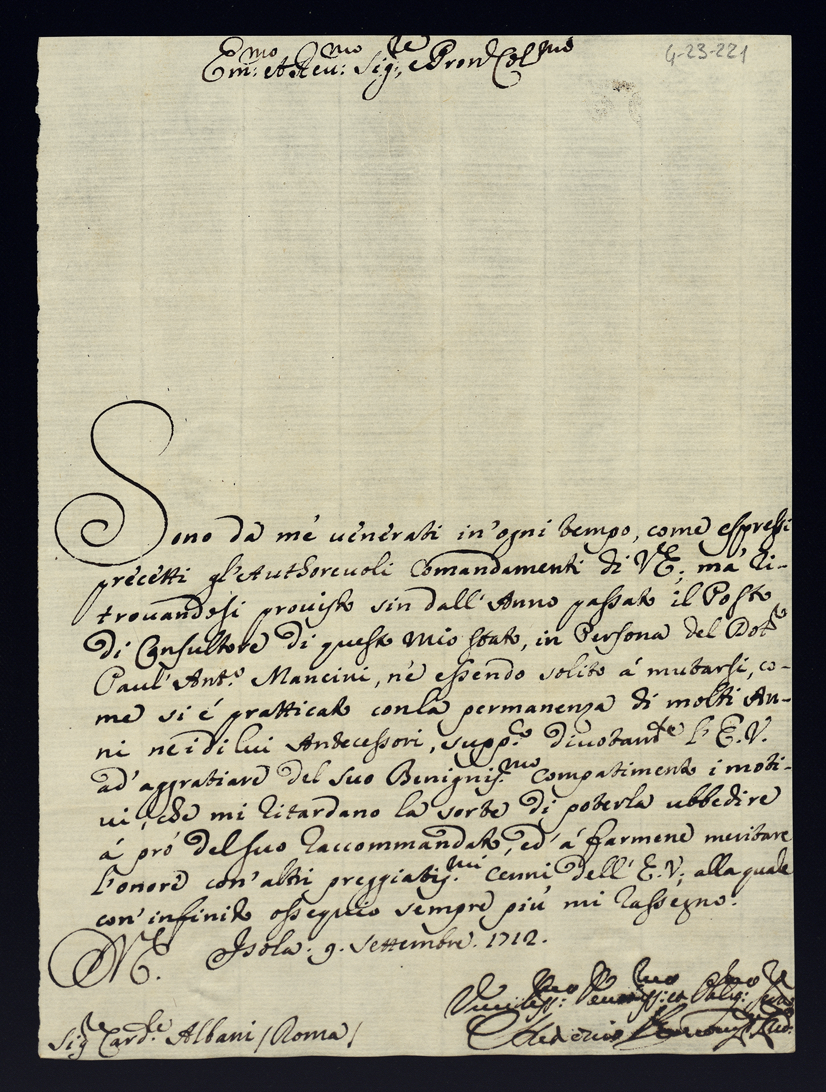 Em:mo et Reu:mo Sig:re e Pron Col:mo
4-23-221
Sono da mé uenerati in'ogni tempo, come espressi
precetti gl'Authoreuoli Comandamenti di VE; má ri-
trouandosi prouisto sin dall'Anno passato il Posto
di Consultore di questo mio stato, in Persona del Dott:r
Paul'Ant.o Mancini, né essendo solito á mutarsi, co-
me si é pratticato con la permanenza di molti An-
ni nei di lui Antecessori, supp.co diuotam.te l'E.V.
ad'aggratiare del suo Benignis.mo compatimento i moti-
ui, che mi ritardano la sorte di poterla ubbedire
á pró del suo raccommandato, ed'á farmene meritare
l'onore con'altri preggiatis.mi cenni dell'E.V; alla quale
con'infinito ossequio sempre piú mi rassegno.
Isola. 9. Settembre. 1712.
Sig.re Card.le Albani / Roma /